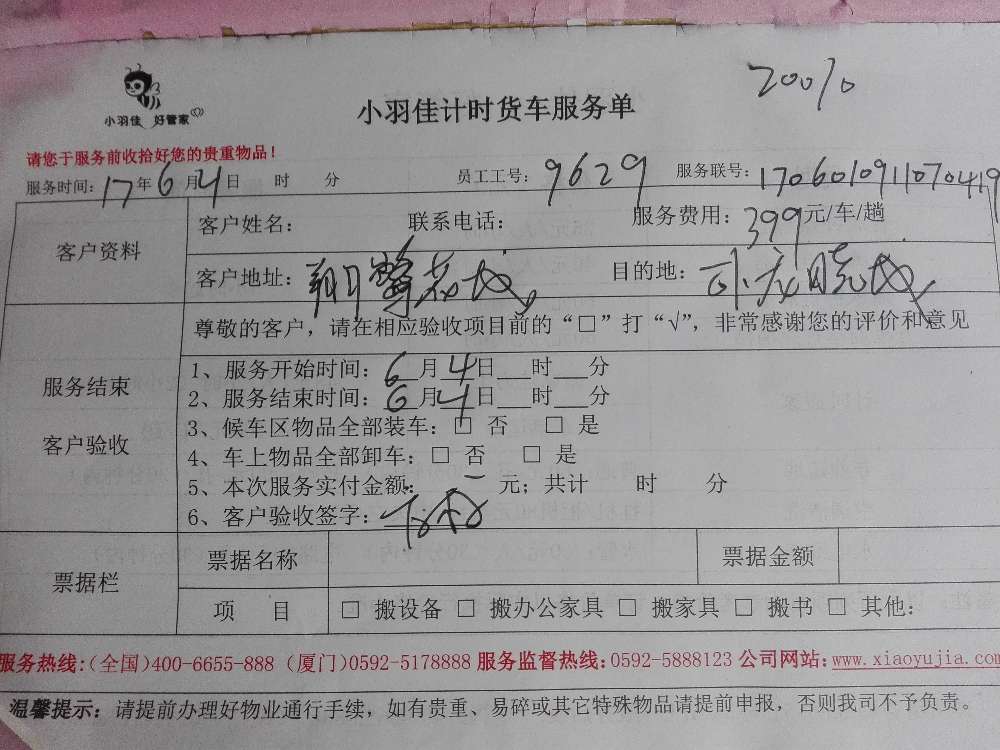 200%
小羽佳 好管家
小羽佳计时货车服务单
请您于服务前收拾好您的贵重物品！
服务时间：17年6月4日 时 分 员工工号：9629 服务联号：1706010911070419
客户资料
客户姓名： 联系电话： 服务费用：399元/车/趟
客户地址：翔鹭花城 目的地：龙晓城
服务结束
客户验收
尊敬的客户，请在相应验收项目前的“□”打“√”，非常感谢您的评价和意见
1、服务开始时间：6月4日___时___分
2、服务结束时间：6月4日___时___分
3、候车区物品全部装车：□ 否 □ 是
4、车上物品全部卸车：□ 否 □ 是
5、本次服务实付金额： 元；共计 时 分
6、客户验收签字：
票据栏
票据名称 票据金额
项 目 □ 搬设备 □ 搬办公家具 □ 搬家具 □ 搬书 □ 其他：
服务热线：(全国)400-6655-888 (厦门)0592-5178888 服务监督热线：0592-5888123 公司网站：www.xiaoyujia.com
温馨提示：请提前办理好物业通行手续，如有贵重、易碎或其它特殊物品请提前申报，否则我司不予负责。